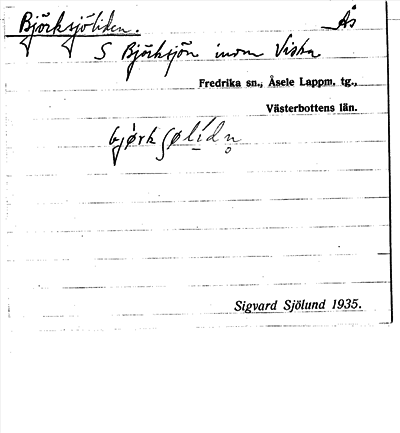 Björksjöliden. Ås
S Björksjön inom Viska
Fredrika sn., Åsele Lappm. tg.,
Västerbottens län.
bjørkʃølídn̥
Sigvard Sjölund 1935.